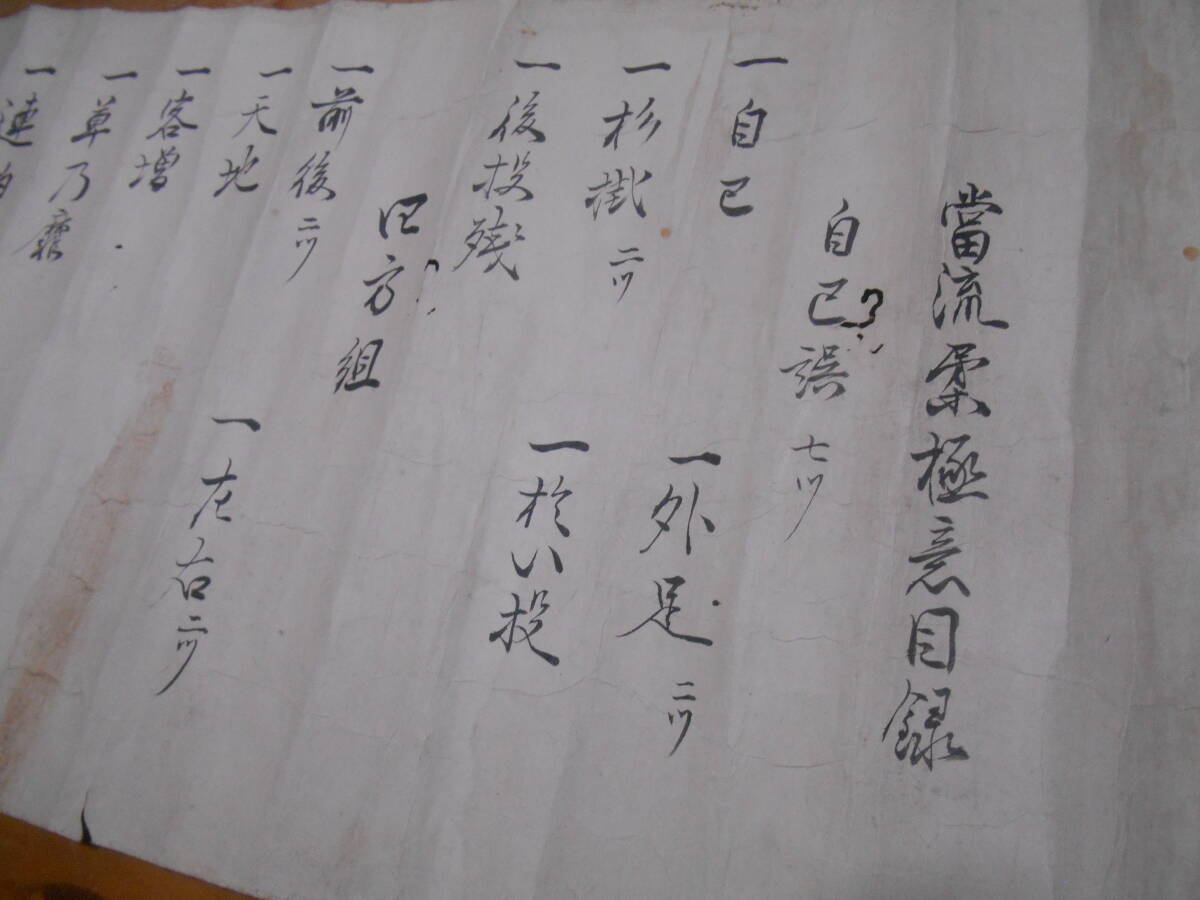 當流柔極意目録
自己誤 七ツ
一自己
一外足 二ツ
一杉掛 二ツ
一於い投
一後投残
四方組
一前後 二ツ
一左右 二ツ
一天地
一客増
一草乃靡
一連